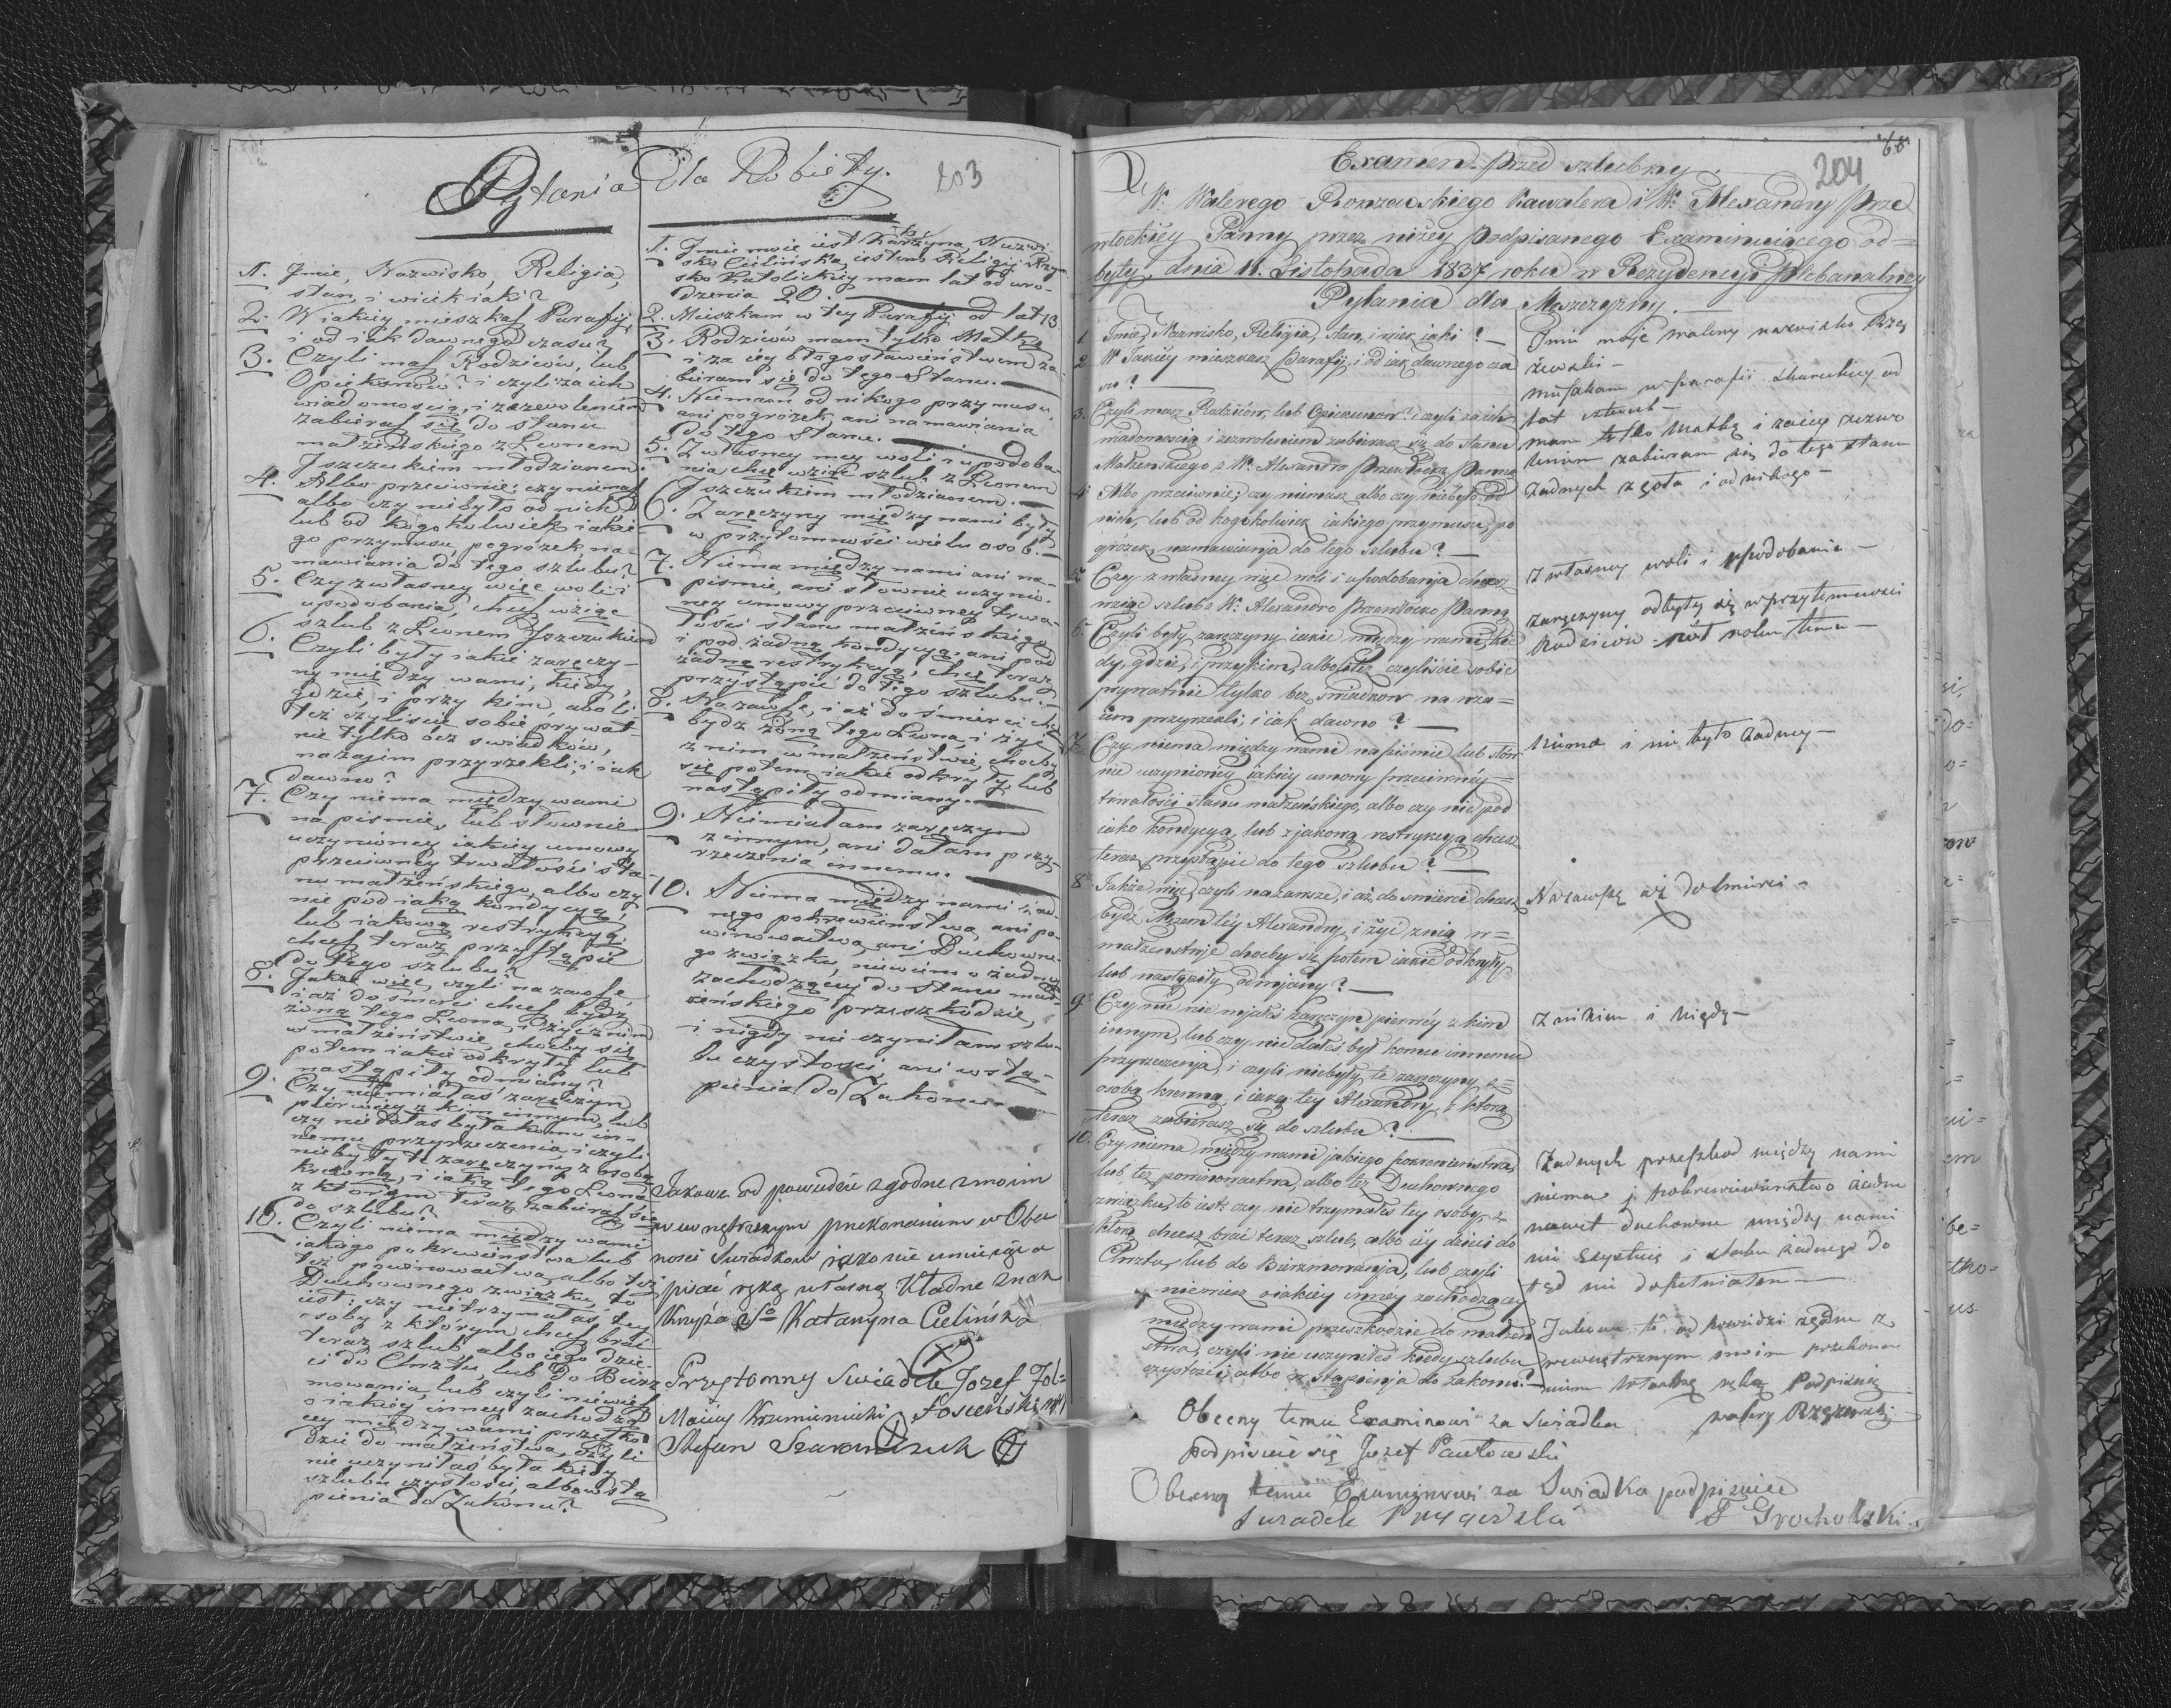 Pytania dla Kobiety.
203
1. Jmie, Nazwisko, Religia,
stan, i wiek iaki?
2. W iakiey mieszkasz Parafij,
i od iak dawnego czasu?
3. Czyli masz Rodziców, lub
Opiekunów? i czyli za ich
wiadomością, i zezwoleniem
zabierasz się do stanu
małżeńskiego z Leonem
Jszczukiem młodzianem.
4. Albo przeciwnie; czy niemasz
albo czy niebyło od nich
lub od kogokolwiek iakie-
go przymusu, pogróżek, na-
mawiania do tego szlubu?
5. Czy z własney więc woli i
upodobania, chcesz wziąć
szlub z Leonem Jszczukiem
6. Czyli były iakie zaręczy-
ny między wami, kiedy,
gdzie, i przy kim, abo li
też czyliscie sobie prywat-
nie tylko bez swiadków,
nazajem przyrzekli; i iak
dawno?
7. Czy niema między wami
na pismie, lub słownie
uczynioney iakiey umowy
przeciwney trwałości sta-
nu małżeńskiego, albo czy
nie pod iaką kondycyą,
lub iakową restrykcyą
chcesz teraz przystąpić
do tego szlubu?
8. Jakże więc, czyli na zawsze,
i aż do śmierci chcesz bydz
żoną tego Leona, i żyć z nim
w małżeństwie, choćby się
potem iakie odkryły, lub
nastąpiły odmiany?
9. Czy niemiałaś zaręczyn
pierwey z kim innym, lub
czy nie dałaś była komu in-
nemu przyrzeczenia, i czyli
niebyły te zaręczyny z osobą
krewną, i iaką tego Leona
z którym teraz zabierasz się
do szlubu?
10. Czyli niema między wami
iakiego pokrewieństwa lub
też powinowactwa, albo też
Duchownego związku, to
iest: czy nietrzymałaś tey
osoby z którym chcesz brać
teraz szlub, albo iego dzie-
ci do Chrztu, lub do Bierz
mowania, lub czyli niewiesz
o iakiey inney zachodzą-
cey między wami przeszko-
dzie do małżeństwa, czyli
nie uczyniłaś była kiedy
szlubu czystości, albo wstą
pienia do Zakonu?
1. Jmie moie iest Katarzyna, Nazwi-
sko Cielińska, iestem Religii Rzym-
sko Katolickiey mam lat od uro-
dzenia 20.
2. Mieszkam w tey Parafij od lat 13.
3. Rodziców mam tylko Matkę
i za iey błogosławieństwem za-
bieram się do tego Stanu.
4. Niemam od nikogo przymusu,
ani pogróżek, ani namawiania
do tego Stanu.
5. Z własney mey woli i upodoba-
nia chcę wziąć szlub z Leonem
Jszczukiem młodzianem.
6. Zaręczyny między nami były
w przytomności wielu osob.
7. Niema między nami ani na-
pismie, ani słownie uczynio-
ney umowy przeciwney trwa-
łości stanu małżeńskiego
i pod żadną kondycyą, ani pod
żadną restrykcyą, chcę teraz
przystąpić do tego szlubu.
8. Na zawsze, i aż do śmierci chcę
bydz żoną tego Leona, i żyć
z nim w małżeństwie, choćby
się potem iakie odkryły, lub
nastąpiły odmiany.
9. Niemiałam zaręczyn
z innym, ani dałam przy-
rzeczenia innemu.
10. Niema między nami żad-
nego pokrewieństwa, ani po-
winowactwa, ani Duchowne-
go związku, niewiem o żadney
zachodzącey do Stanu mał-
żeńskiego przeszkodzie,
i nigdy nie czyniłam szlu-
bu czystości, ani wstą-
pienia do Zakonu.
Jakowe od powiedzie zgodne z moim
wewnętrznym przekonaniem w Obec
ności Swiadkow jako nie umiejąca
pisać ręką własną kładne znak
Krzyża S. Katarzyna Cielińska
Przytomny Swiadek Jozef
Maciey Krzemieniecki
Stefan
204
65
Examen przed szlubny
W. Walerego Rozzewskiego Kawalera i W. Alexandry Prze
włockiéy Panny przez niżey podpisanego Examinuiącego od=
byty, dnia 11. Listopada 1837 roku w Rezydencyi Plebanalney
Pytania dla Mezczyzny.
1 Jmie, Nazwisko, Religia, stan, i wiek iaki?
2 W Jakiéy mieszkasz Parafij, i od iak dawnego cza
su?
3. Czyli masz Rodziców, lub Opiekunow? i czyli za ich
wiadomością i zezwoleniem zabierasz się do stanu
Małżenskiego z W. Alexandrą Przewłocką Panną
4 Albo przeciwnie; czy niemasz albo czy niebyło od
nich, lub od kogokolwiek iakiego przymusu, po
gróżek, namawiania do tego szlubu?
5 Czy z własney więc woli i upodobania chcesz
wziąć szlub z W. Alexandrą Przewłocką Panną
6. Czyli były zaręczyny iakie między wami, kie
dy, gdzie, i przy kim, albo też czyliście sobie
prywatnie tylko bez świadkow na wza=
iem przyrzekli; i iak dawno?
7 Czy niema między wami na piśmie lub słow
nie uczynionéy iakiéy umowy przeciwnéy=
trwałości stanu małżeńskiego, albo czy nie pod
iaką kondycyą, lub z jakową restrykcyą chcesz
teraz przystąpić do tego szlubu?
8 Jakże więc, czyli na zawsze, i aż do smierci chcesz
bydź Mężem téy Alexandry, i żyć z nią w=
małzenstwie choćby się potem iakie odkryły
lub nastąpiły odmiany?
9 Czy też nie miałeś zaręczyn pierwéy z kim
innym, lub czy nie dałeś był komu innemu
przyrzeczenia, i czyli niebyły te zaręczyny z=
osobą krewną, i iaką tey Alexandry, z którą
teraz zabierasz się do szlubu?
10. Czy niema między wami jakiego pokrewieństwa,
lub też powinowactwa, albo też Duchownego
związku, to iest: czy nie trzymałeś tey osoby, z
którą chcesz brać teraz szlub, albo iéy dzieci do
Chrztu, lub do Bierzmowania, lub czyli
niewiesz o iakiéy inney zachodzącey
między wami przeszkodzie do małżeń
stwa, czyli nie uczyniłeś kiedy szlubu
czystości albo wstąpienia do zakonu?
Jmie moje Walery nazwisko Rzą
żewski
miszkam w parafii od
lat
mam tylko Matkę i za iey zezwo
leniem zabieram się do tego stanu
żadnych zgoła i od nikogo
z własney woli i upodobania
zaręczyny odbyły się w przytomnosci
Rodziców pół roku temu
Niema i nie było żadney
Na zawsze aż do śmierci
Z nikim i Nigdy
Żadnych przeszkod między nami
niema i pokrewieństwo żadne
nawet duchowne między nami
nie i slubu żadnego do
tąd nie dopełniałem
Jakowe to od powiedzi zgodne z
wewnętrznym moim przekona
niem własną ręką Podpisuię
Walery
Obecny temu Examinowi za Swiadka
podpisuie się Jozef Pawłowski
Obecny temu Examinowi za Swiadka podpisuiée
F Grocholski